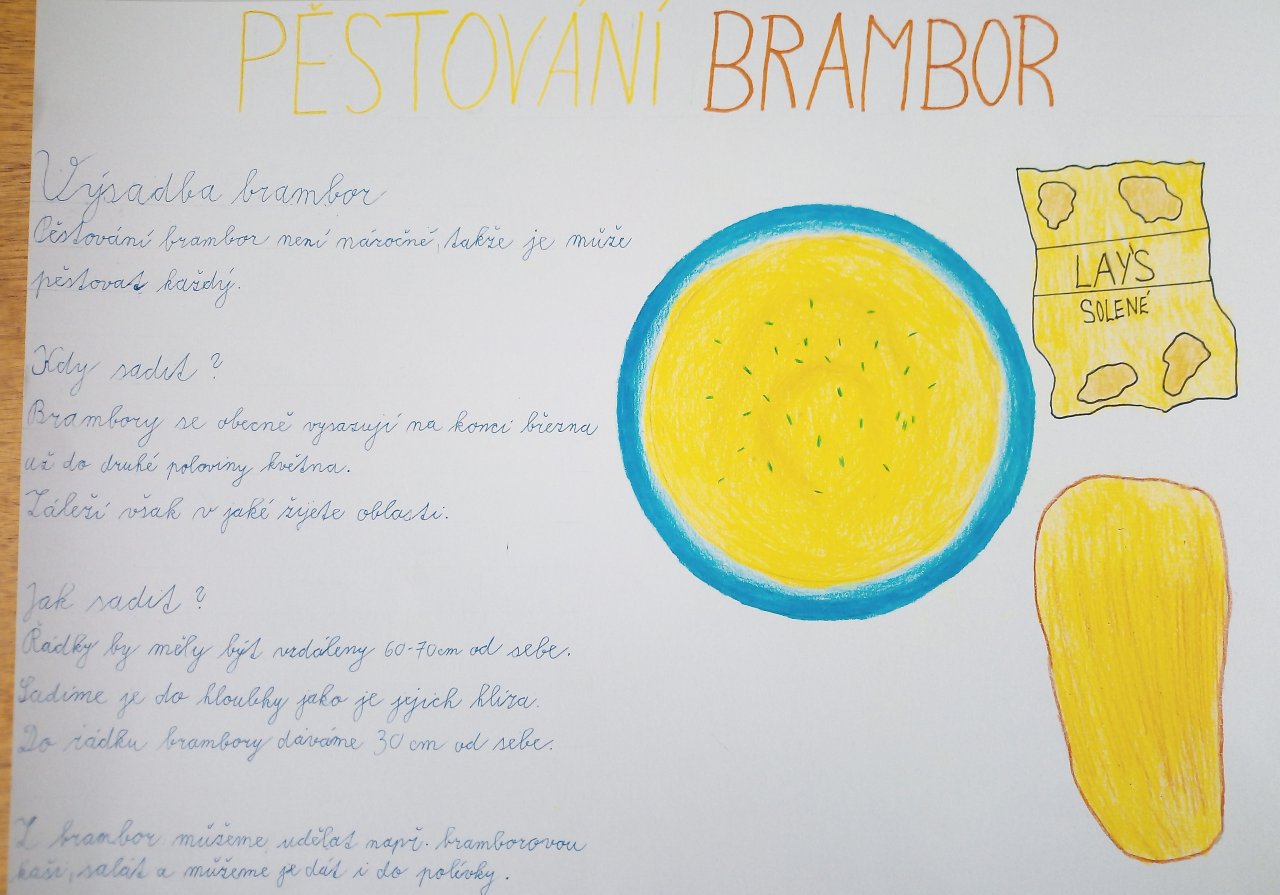 PĚSTOVÁNÍ BRAMBOR
Výsadba brambor
Pěstování brambor není náročné, takže je může
pěstovat každý.
Kdy sadit ?
Brambory se obecně vysazují na konci března
až do druhé poloviny května.
Záleží však v jaké žijete oblasti.
Jak sadit ?
Řádky by měly být vzdáleny 60-70cm od sebe.
Sadíme je do hloubky jako je jejich hlíza.
Do řádku brambory dáváme 30 cm od sebe.
Z brambor můžeme udělat např. bramborovou
kaši, salát a můžeme je dát i do polívky.
LAY'S
SOLENÉ